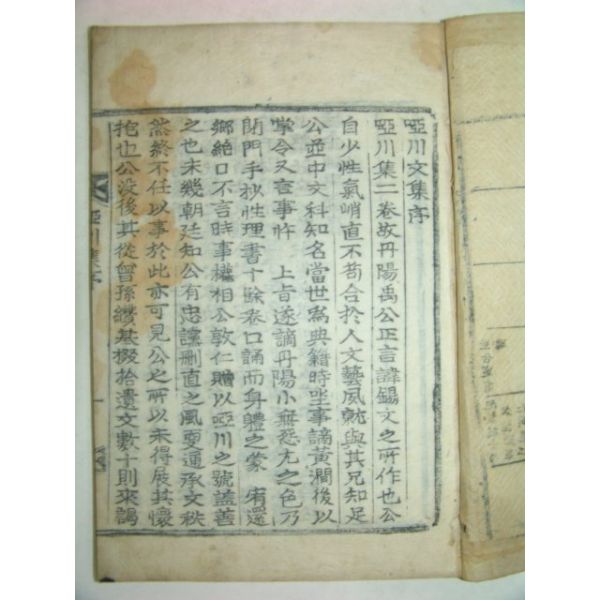 啞川文集序
啞川集二卷故丹陽禹公正言諱錫文之所作也公
自少性氣峭直不苟合於人文藝夙就與其兄知足
公並中文科知名當世爲典籍時坐事謫黃澗後以
掌令又言事忤 上旨遂謫丹陽小無怨尤之色乃
閉門手抄性理書十餘卷口誦而身體之蒙 宥還
鄕絶口不言時事權相公敦仁贈以啞川之號盖善
之也未幾朝廷知公有忠讜剛直之風更通承文秩
然終不任以事於此亦可見公之所以未得展其懷
抱也公沒後其從曾孫纘基掇拾遺文數十則來謁
啞川集序
一